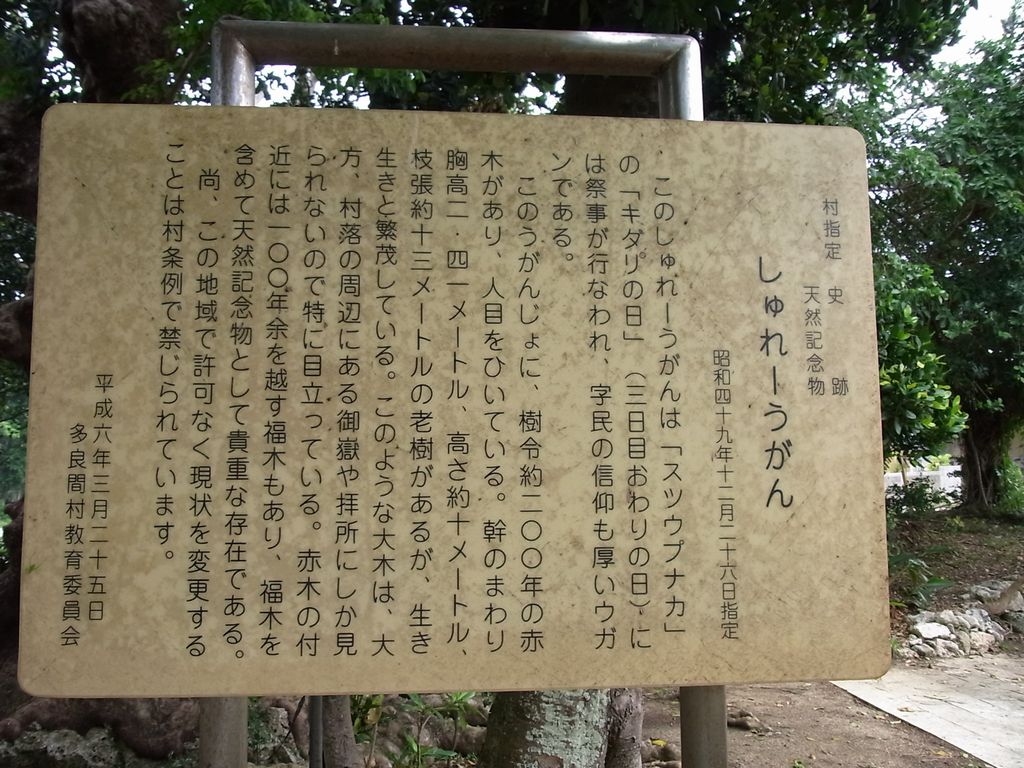 村指定　史　　　跡
天然記念物
しゅれーうがん
昭和四十九年十二月二十六日指定
このしゅれーうがんは「スツウプナカ」
の「キダリの日」（三日目おわりの日）に
は祭事が行なわれ、字民の信仰も厚いウガ
ンである。
このうがんじょに、樹令約二〇〇年の赤
木があり、人目をひいている。幹のまわり
胸高二・四一メートル、高さ約十メートル、
枝張約十三メートルの老樹があるが、生き
生きと繁茂している。このような大木は、大
方、村落の周辺にある御嶽や拝所にしか見
られないので特に目立っている。赤木の付
近には一〇〇年余を越す福木もあり、福木を
含めて天然記念物として貴重な存在である。
尚、この地域で許可なく現状を変更する
ことは村条例で禁じられています。
平成六年三月二十五日
多良間村教育委員会